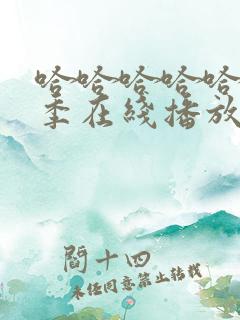 哈哈哈哈哈
季在线播放
阎十四
未经同意禁止转载